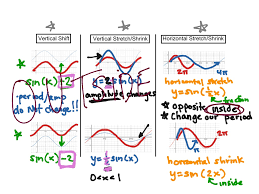 Vertical Shift
Vertical Stretch/Shrink
Horizontal Stretch/Shrink
sin(x)+2
period/amp
do NOT change!!
sin(x)-2
y=2sin(x)
amplitude changes
y=½sin(x)
0<x<1
2π 4π
horizontal stretch
y=sin(½x)
fraction
opposite insides
change our period
π
horizontal shrink
y=sin(2x)
inside